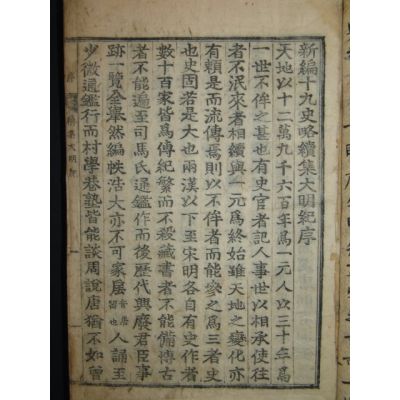 新編十九史略續集大明紀序
天地以十二萬九千六百年爲一元人以三十年爲
一世不侔之甚也有史官者記人事世以相承使往
者不泯來者相續與一元爲終始雖天地之變化亦
有頼是而流傳焉則以不侔者而能參之爲三者史
也史固若是大也两漢以下至宋明各自有作者史
數十百家皆爲傳紀繁而不殺藏書者不能備博古
者不能遍至司馬氏通鑑作而後歷代興廢君臣事
跡一覽全擧然編帙浩大亦不可家居音㞐也人誦至
少微通鑑行而村學巷塾皆能談周說唐猶不如曾
序
續集大明紀
一